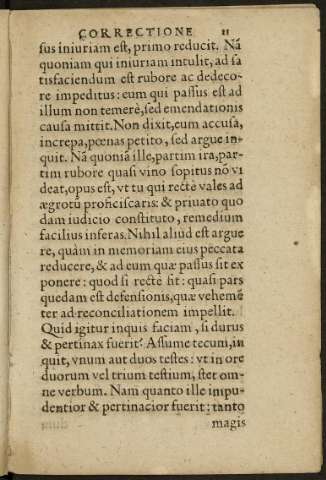 CORRECTIONE 11
sus iniuriam est, primo reducit. Nã
quoniam qui iniuriam intulit, ad sa
tisfaciendum est rubore ac dedeco-
re impeditus: eum qui passus est ad
illum non temerè, sed emendationis
causa mittit. Non dixit, eum accusa,
increpa, pœnas petito, sed argue in-
quit. Nã quoniã ille, partim ira, par-
tim rubore quasi vino sopitus nõ vi
deat, opus est, vt tu qui rectè vales ad
ægrotũ proficiscaris: & priuato quo
dam iudicio constituto, remedium
facilius inferas. Nihil aliud est argue
re, quàm in memoriam eius peccata
reducere, & ad eum quæ passus sit ex
ponere: quod si rectè fit: quasi pars
quedam est defensionis, quæ vehemẽ
ter ad reconciliationem impellit.
Quid igitur inquis faciam, si durus
& pertinax fuerit? Assume tecum, in
quit, vnum aut duos testes: vt in ore
duorum vel trium testium, stet om-
ne verbum. Nam quanto ille impu-
dentior & pertinacior fuerit: tanto
magis